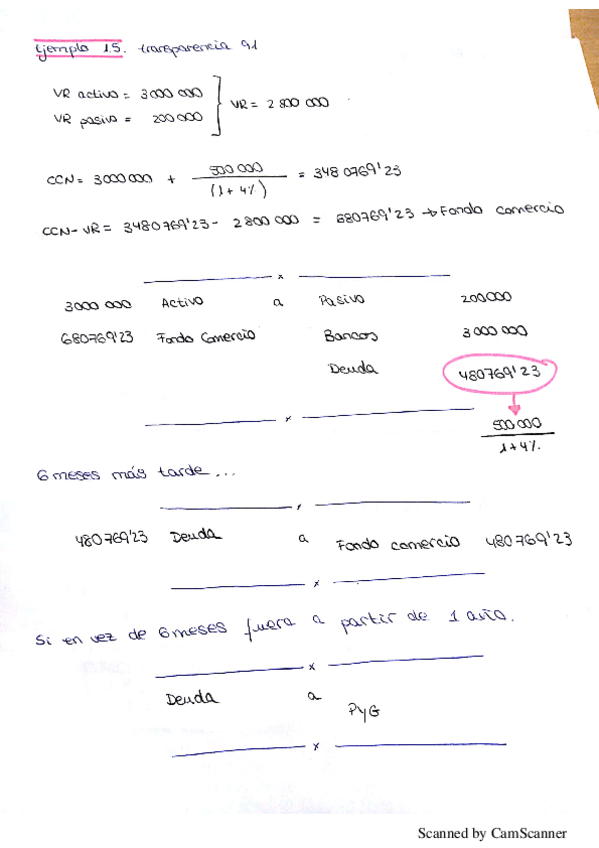 Ejemplo 15. transparencia 91
VR activo = 3000 000
VR pasivo = 200 000
VR = 2 800 000
CCN = 3000000 + 500 000 / (1+4%) = 348 0769'23
CCN-VR = 3480769'23 - 2800 000 = 680769'23 → Fondo comercio
x
3000 000 Activo a Pasivo 200000
680769'23 Fondo Comercio Bancos 3 000 000
Deuda 480769'23
x
500 000
1+4%
6 meses más tarde...
480769'23 Deuda a Fondo comercio 480769'23
x
Si en vez de 6 meses fuera a partir de 1 año.
x
Deuda a PyG
x
Scanned by CamScanner